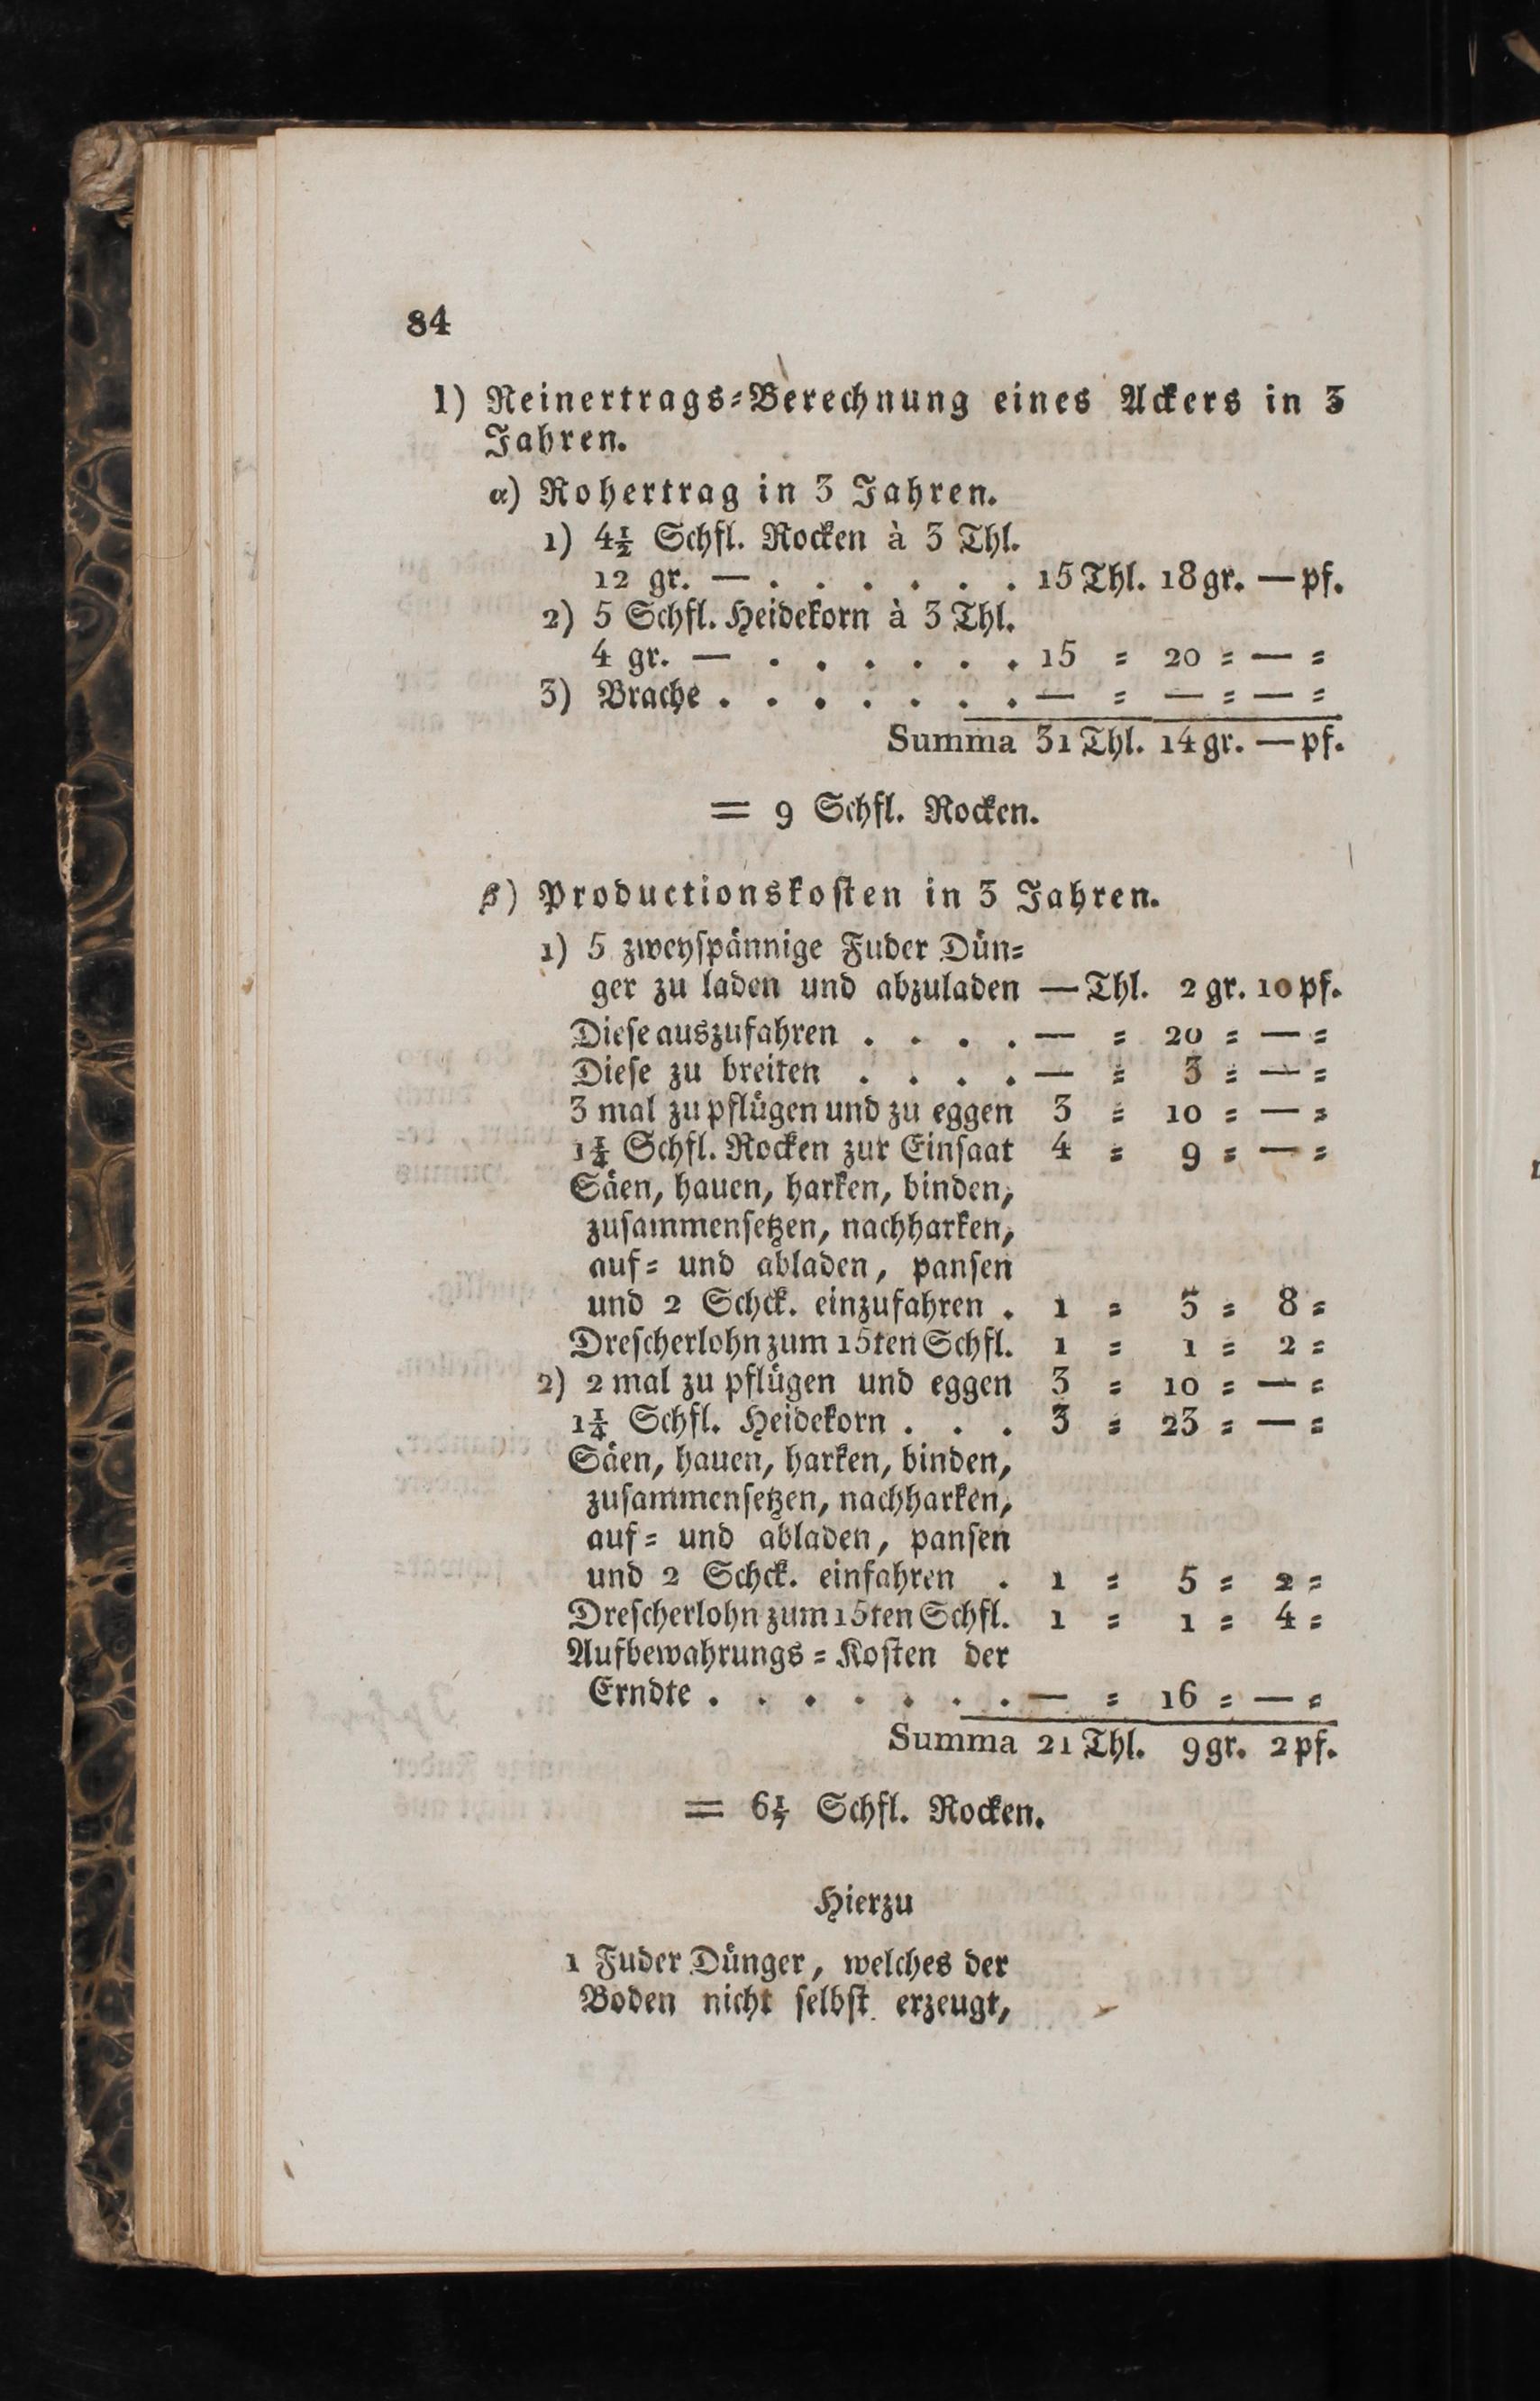 84
1) Reinertrags-Berechnung eines Ackers in 3
Jahren.
α) Rohertrag in 3 Jahren.
1) 4½ Schfl. Rocken à 3 Thl.
12 gr. — . . . . . . 15 Thl. 18 gr. — pf.
2) 5 Schfl. Heidekorn à 3 Thl.
4 gr. — . . . . . . 15 = 20 = — =
3) Brache . . . . . . . — = — = — =
Summa 31 Thl. 14 gr. — pf.
= 9 Schfl. Rocken.
β) Productionskosten in 3 Jahren.
1) 5 zweyspännige Fuder Dün-
ger zu laden und abzuladen — Thl. 2 gr. 10 pf.
Diese auszufahren . . . . — = 20 = — =
Diese zu breiten . . . . — = 3 = — =
3 mal zu pflügen und zu eggen 3 = 10 = — =
1¼ Schfl. Rocken zur Einsaat 4 = 9 = — =
Säen, hauen, harken, binden,
zusammensetzen, nachharken,
auf- und abladen, pansen
und 2 Schck. einzufahren . 1 = 5 = 8 =
Drescherlohn zum 15ten Schfl. 1 = 1 = 2 =
2) 2 mal zu pflügen und eggen 3 = 10 = — =
1¼ Schfl. Heidekorn . . . 3 = 23 = — =
Säen, hauen, harken, binden,
zusammensetzen, nachharken,
auf- und abladen, pansen
und 2 Schck. einfahren . 1 = 5 = 2 =
Drescherlohn zum 15ten Schfl. 1 = 1 = 4 =
Aufbewahrungs-Kosten der
Erndte . . . . . . . — = 16 = — =
Summa 21 Thl. 9 gr. 2 pf.
= 6⅐ Schfl. Rocken.
Hierzu
1 Fuder Dünger, welches der
Boden nicht selbst erzeugt,